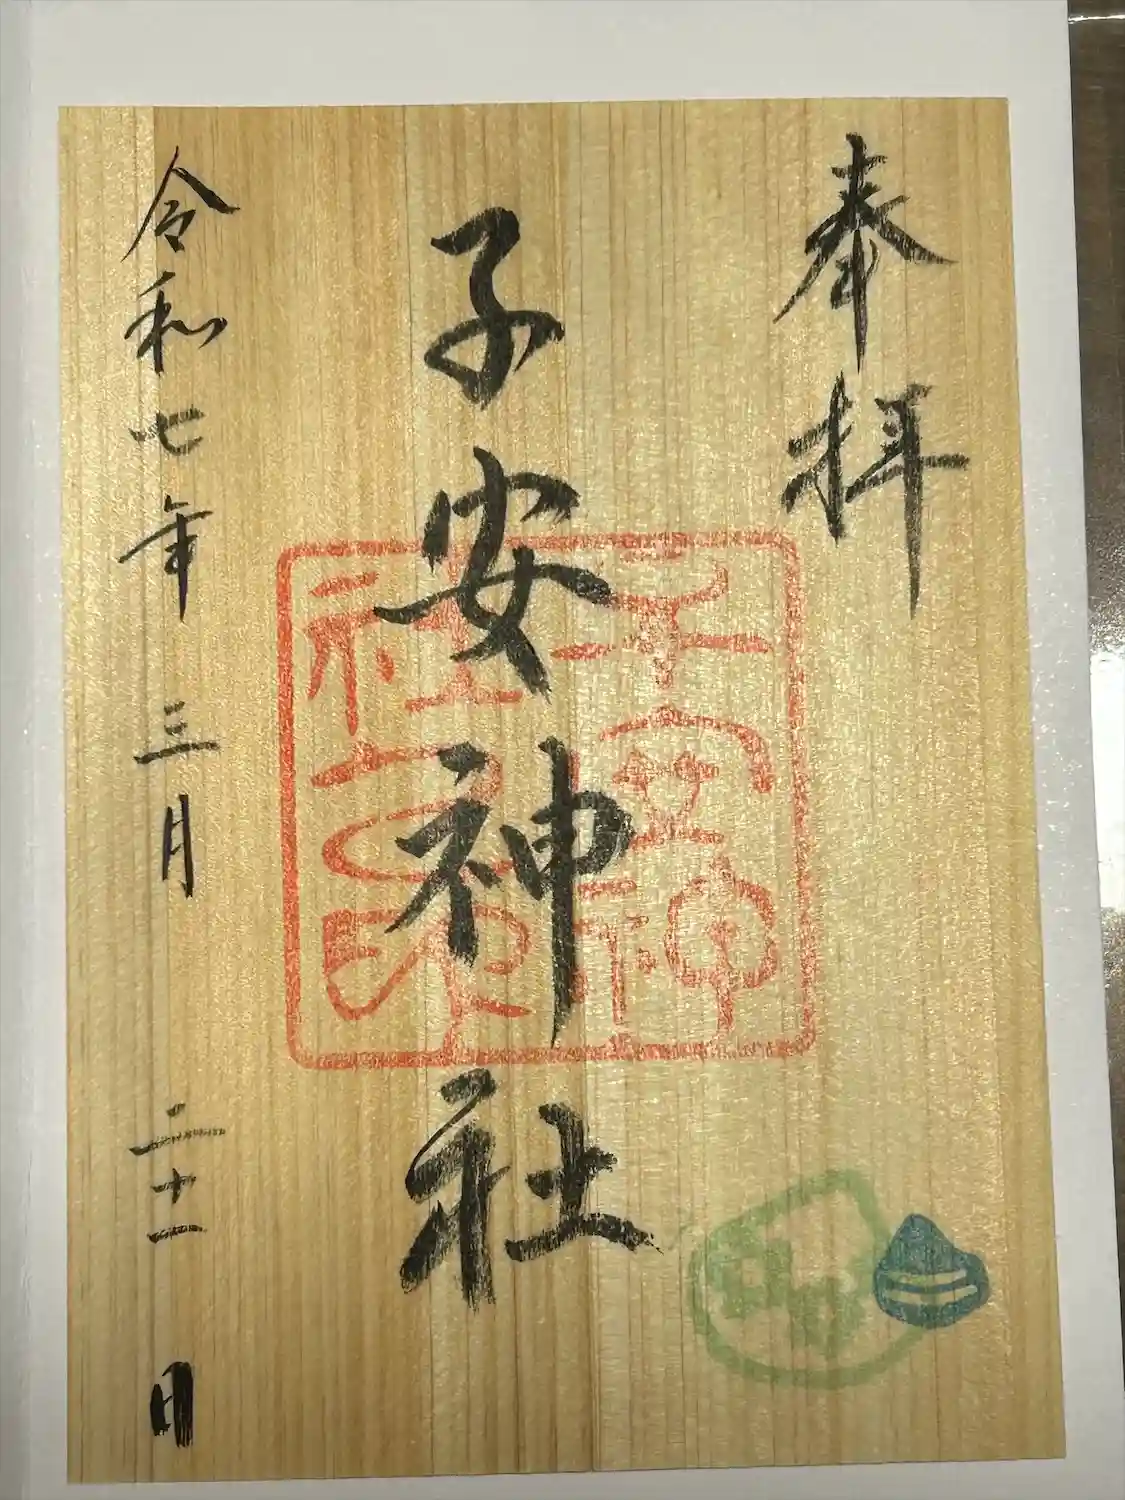 奉拝
子安神社
子安神社之印
令和七年三月二十一日